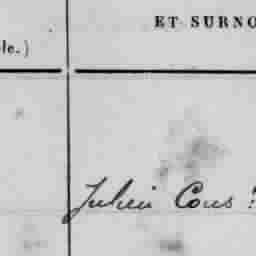 ET SURNO
ble.)
Julien Cous